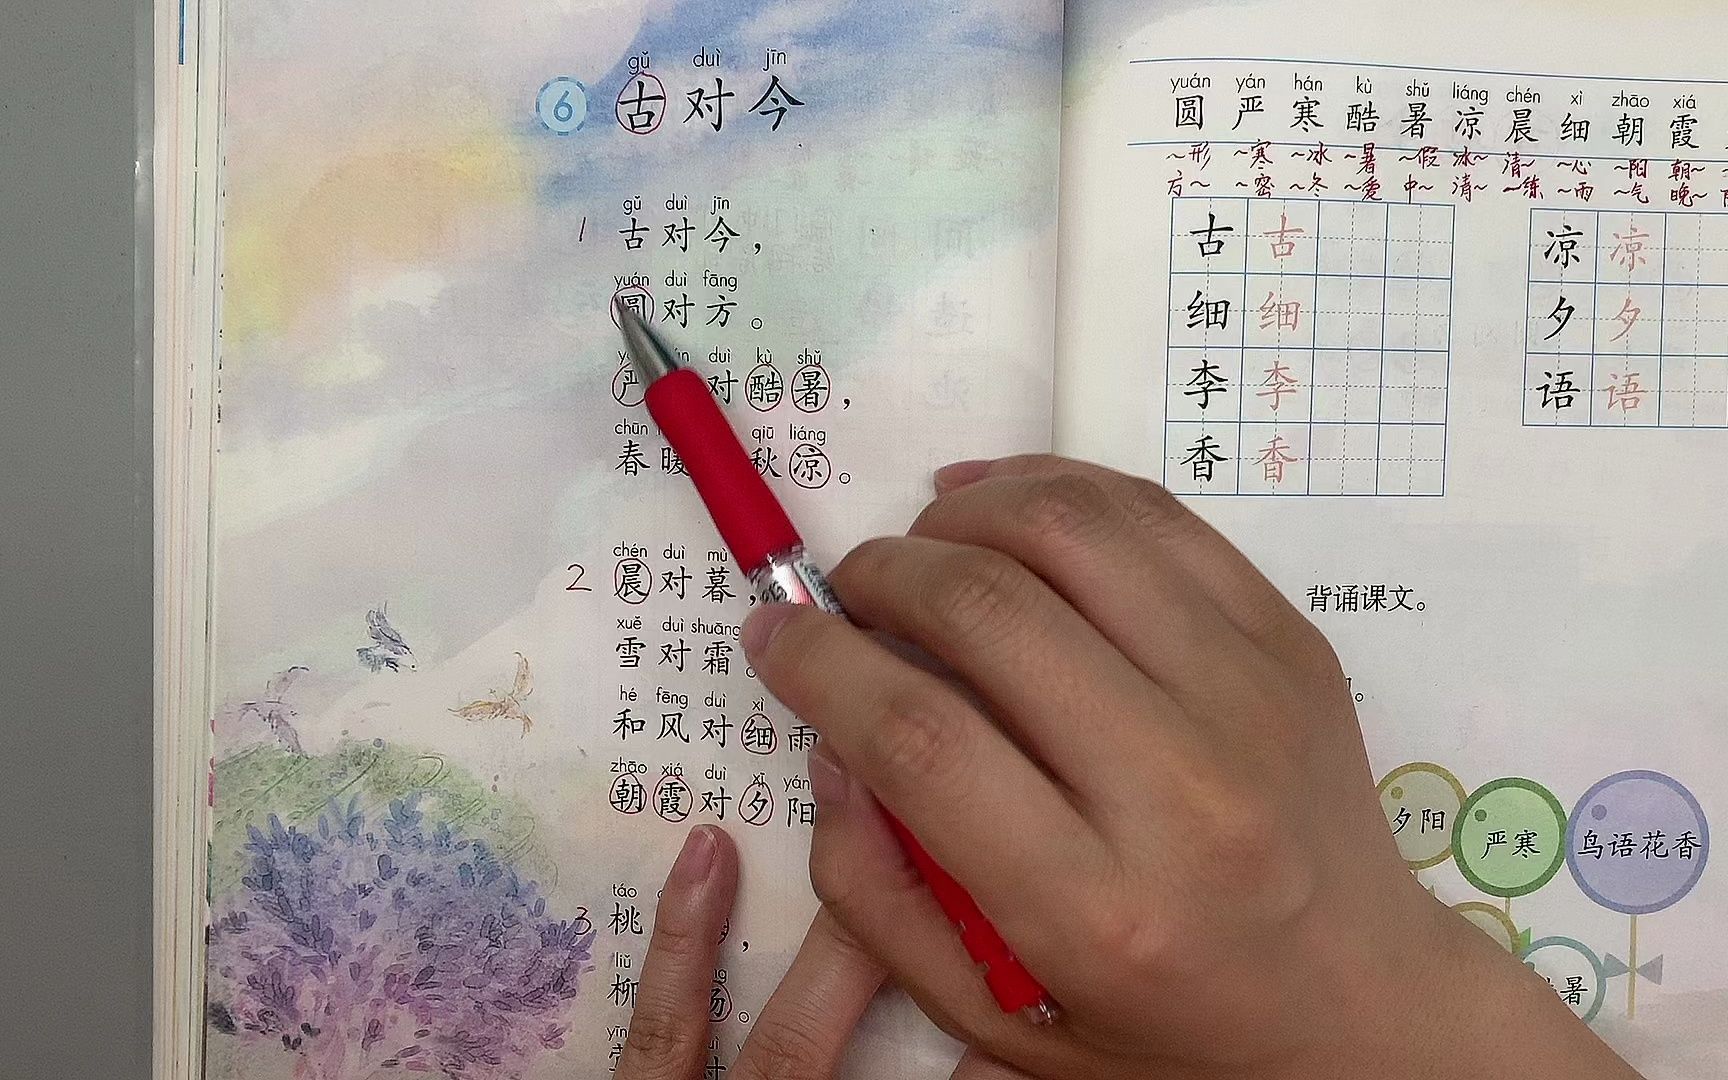 gǔ duì jīn
6 古对今
gǔ duì jīn
1 古对今，
yuán duì fāng
圆对方。
duì kù shǔ
严 对酷暑，
chūn qiū liáng
春暖 秋凉。
chén duì mù
2 晨对暮，
xuě duì shuāng
雪对霜。
hé fēng duì xì
和风对细雨
zhāo xiá duì xī yán
朝霞对夕阳
táo
3 桃 ，
liǔ
柳 。
yīn
对
yuán yán hán kù shǔ liáng chén xì zhāo xiá
圆 严 寒 酷 暑 凉 晨 细 朝 霞
~形 ~寒 ~冰 ~暑 ~假 冰~ 清~ ~心 ~阳 朝~
方~ ~密 ~冬 ~爱 中~ 清~ ~练 ~雨 ~气 晚~
古 古 凉 凉
细 细 夕 夕
李 李 语 语
香 香
背诵课文。
夕阳
严寒
鸟语花香
暑